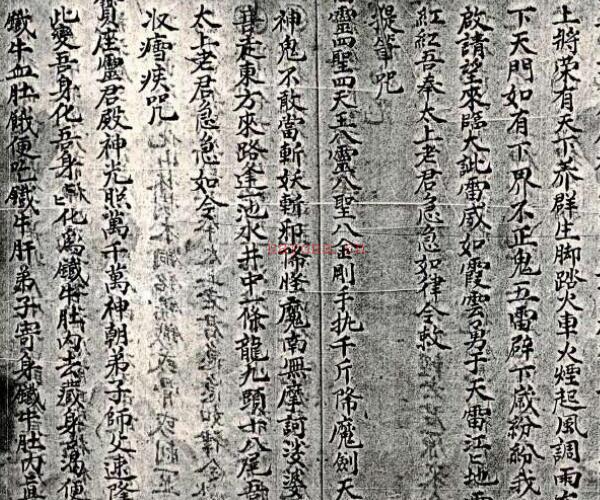 上將榮有天下养群生脚踏火車火煙起風調雨
下天門如有下界不正鬼五雷辟下歲紛紛我
啟請望來臨大訨雷威如霞雲男子天雷江山地
紅紅吾奉太上老君急急如律令敕
提筆咒
靈四聖四天王八靈八聖八金剛手执千斤降魔劍天
神鬼不敢當斬妖斬邪降怪魔南無摩訶波婆
善走東方來路逢池水井中一條龍九頭十八尾吾
太上老君急急如令
收瘧疾咒
寶座靈君殿神光照萬千萬神朝弟子師父速降
此變吾身化吾身化為鐵牛肚内去藏身渴便
鐵牛血肚餓便吃鐵牛肝弟子寄身鐵牛肚内